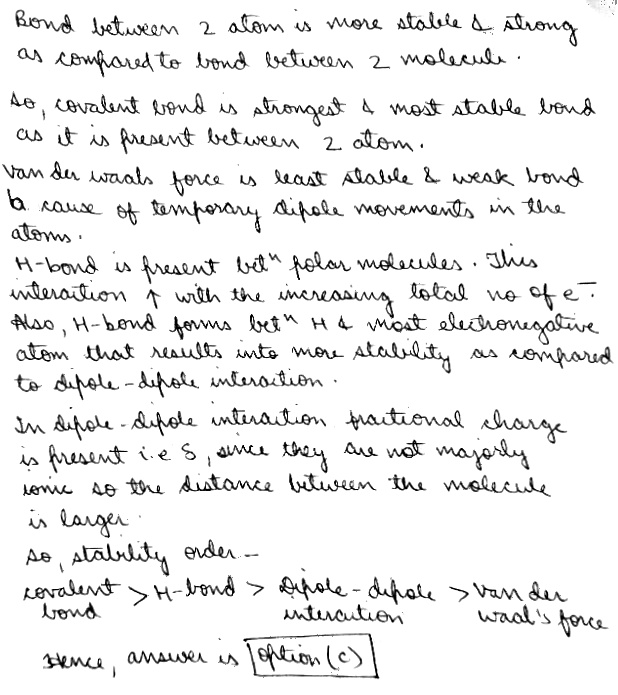 Bond between 2 atom is more stable & strong
as compared to bond between 2 molecule.
so, covalent bond is strongest & most stable bond
as it is present between 2 atom.
van der waals force is least stable & weak bond
b cause of temporary dipole movements in the
atoms.
H-bond is present betⁿ polar molecules. This
interaction ↑ with the increasing total no of e⁻.
Also, H-bond forms betⁿ H & most electronegative
atom that results into more stability as compared
to dipole-dipole interaction.
In dipole-dipole interaction fractional charge
is present i.e δ, since they are not majorly
ionic so the distance between the molecule
is larger.
so, stability order —
covalent bond > H-bond > Dipole-dipole intercution > van der waal's force
Hence, answer is option (c)